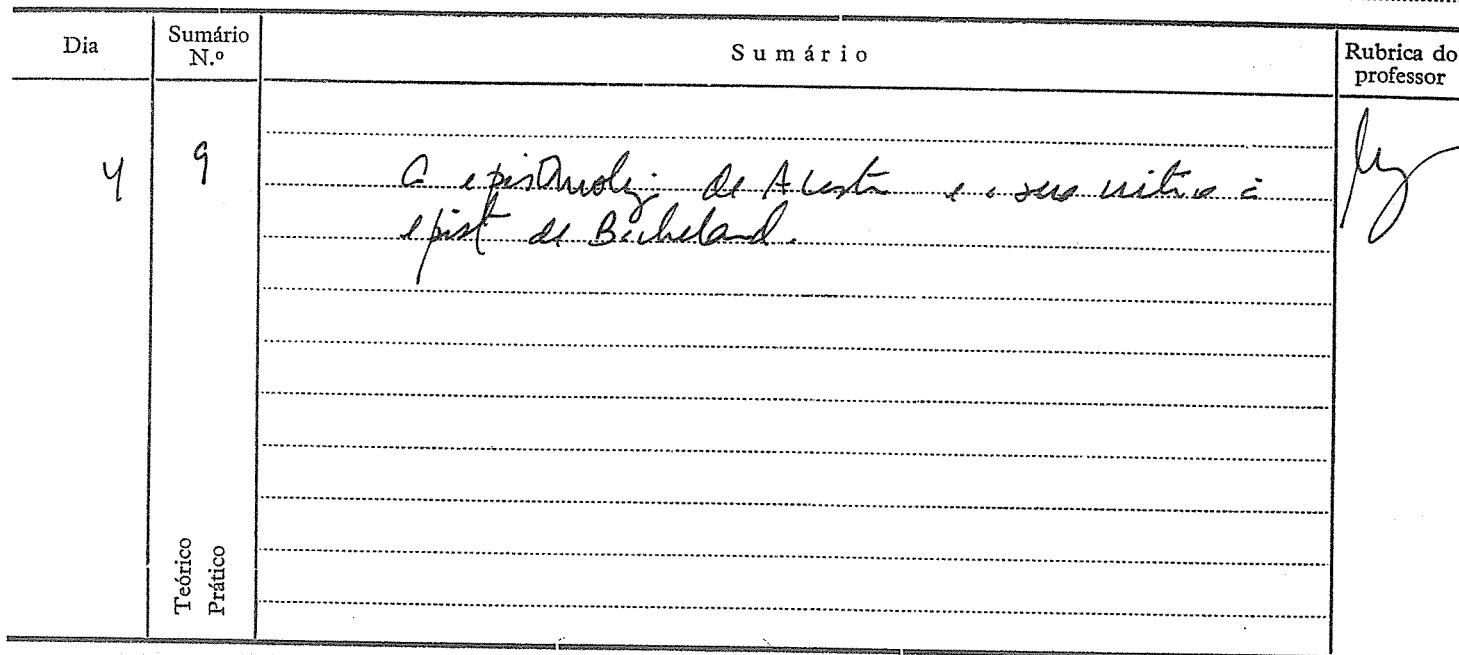 Dia
Sumário N.º
Sumário
Rubrica do professor
4
9
A epistemologia de e a sua crítica à
epist de Bachelard.
Teórico
Prático